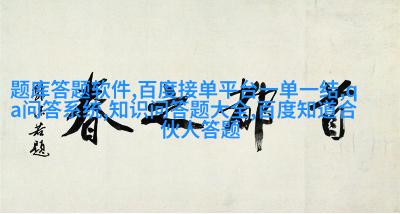 题库答题软件,百度接单平台一单一结,q
a问答系统,知识问答题大全,百度知道合
伙人答题
首都之春
郭沫若题